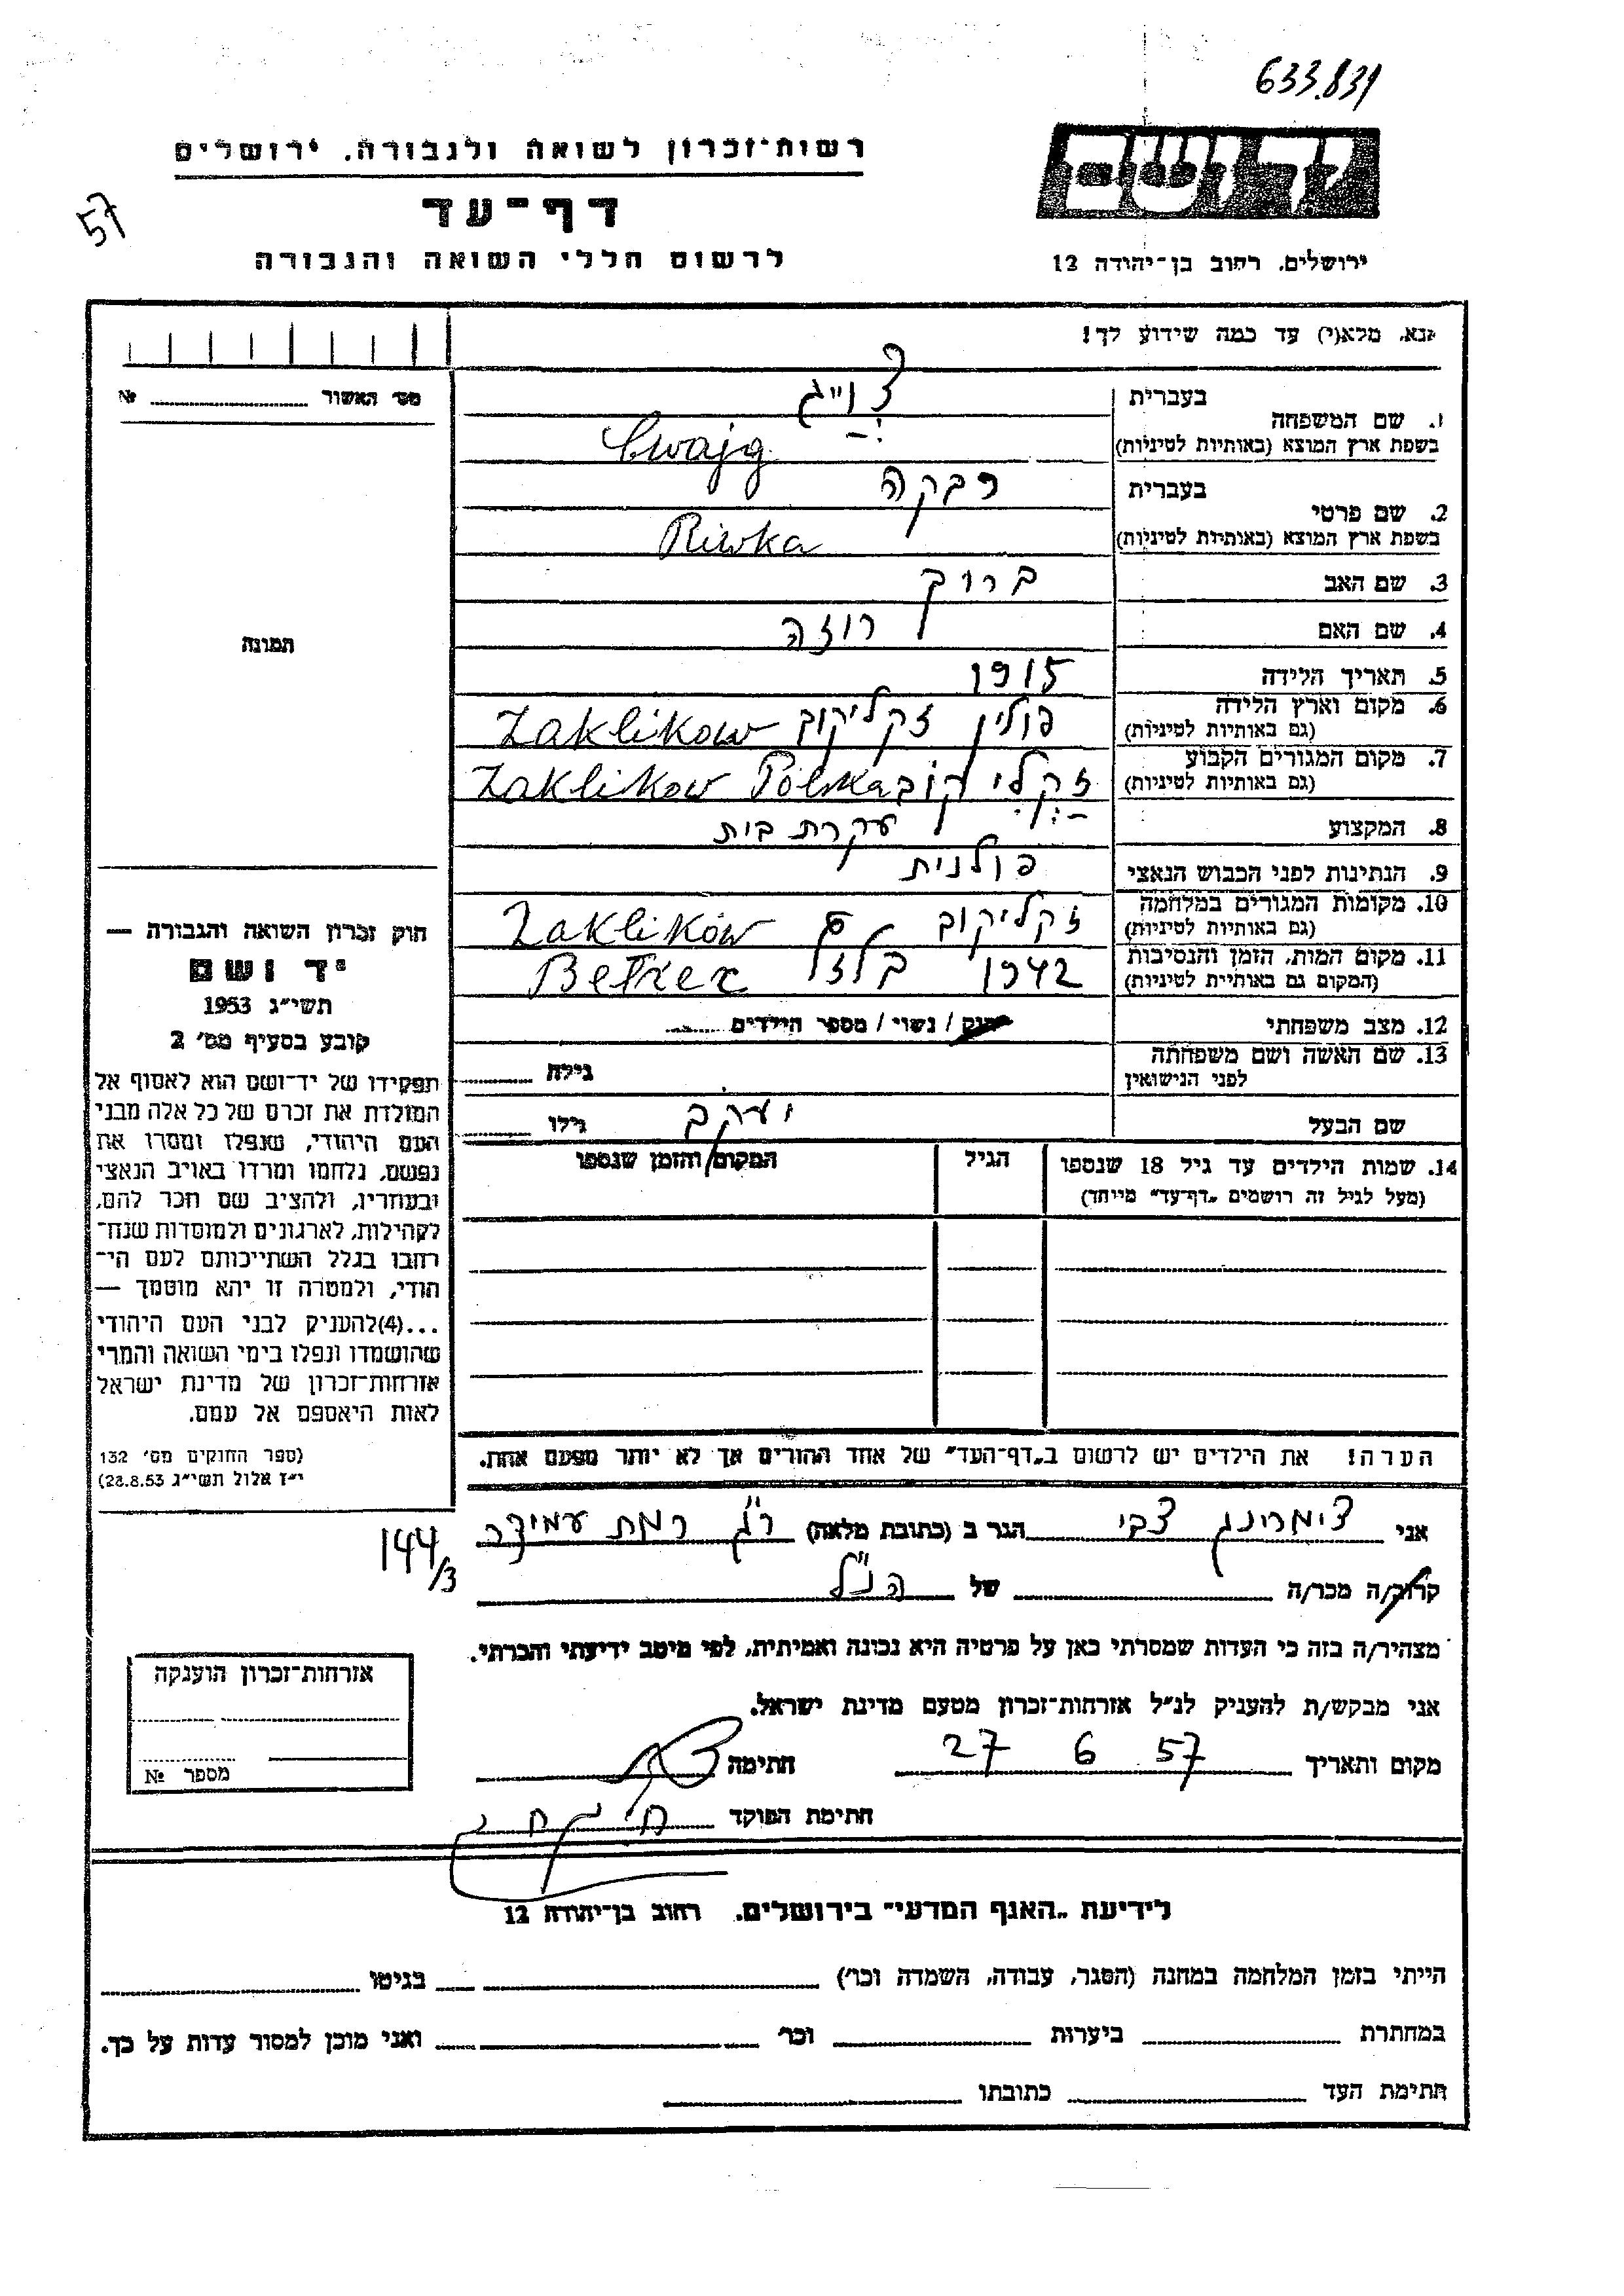 633.831
רשות־זכרון לשואה ולגבורה, ירושלים
דף־עד
57
לרשום חללי השואה והגבורה
ירושלים, רחוב בן־יהודה 12
נא, מלא(י) עד כמה שידוע לך!
מס׳ האשור №
בעברית צווייג
1. שם המשפחה
בשפת ארץ המוצא (באותיות לטיניות) Cwajg
בעברית רבקה
2. שם פרטי
בשפת ארץ המוצא (באותיות לטיניות) Riwka
3. שם האב ברוך
4. שם האם רוזה
תמונה
5. תאריך הלידה 1915
6. מקום וארץ הלידה פולין זקליקוב Zaklikow
(גם באותיות לטיניות)
7. מקום המגורים הקבוע זקליקוב Zaklikow Polska
(גם באותיות לטיניות)
8. המקצוע עקרת בית
9. הנתינות לפני הכבוש הנאצי פולנית
10. מקומות המגורים במלחמה זקליקוב Zaklików
(גם באותיות לטיניות)
11. מקום המות, הזמן והנסיבות 1942 בלזל Betrez
(המקום גם באותיית לטיניות)
12. מצב משפחתי רווק / נשוי / מספר הילדים
13. שם האשה ושם משפחתה גילה
לפני הנישואין
שם הבעל יעקב גילו
14. שמות הילדים עד גיל 18 שנספו הגיל המקום והזמן שנספו
(מעל לגיל זה רושמים „דף־עד״ מייחד)
חוק זכרון השואה והגבורה —
יד ושם
תשי״ג 1953
קובע בסעיף מס׳ 2
תפקידו של יד־ושם הוא לאסוף אל
המולדת את זכרם של כל אלה מבני
העם היהודי, שנפלו ומסרו את
נפשם, נלחמו ומרדו באויב הנאצי
ובעוזריו, ולהציב שם וזכר להם,
לקהילות, לארגונים ולמוסדות שנח־
רבו בגלל השתייכותם לעם הי־
הודי, ולמטרה זו יהא מוסמך —
...(4) להעניק לבני העם היהודי
שהושמדו ונפלו בימי השואה והמרי
אזרחות־זכרון של מדינת ישראל
לאות היאספם אל עמם.
(ספר החוקים מס׳ 132
י״ז אלול תשי״ג 28.8.53)
הערה! את הילדים יש לרשום ב„דף־העד״ של אחד ההורים אך לא יותר מפעם אחת.
אני צימרינג צבי הגר ב (כתובת מלאה) ר״ג רמת עמידר
144/3
קרוב/ה מכר/ה של הנ״ל
מצהיר/ה בזה כי העדות שמסרתי כאן על פרטיה היא נכונה ואמיתית, לפי מיטב ידיעתי והכרתי.
אני מבקש/ת להעניק לנ״ל אזרחות־זכרון מטעם מדינת ישראל.
מקום ותאריך 27 6 57 חתימה
חתימת הפוקד
אזרחות־זכרון הוענקה
מספר №
לידיעת „האגף המדעי״ בירושלים, רחוב בן־יהודה 12
הייתי בזמן המלחמה במחנה (הסגר, עבודה, השמדה וכר׳) בגיטו
במחתרת ביערות וכר׳ ואני מוכן למסור עדות על כך.
חתימת העד כתובתו